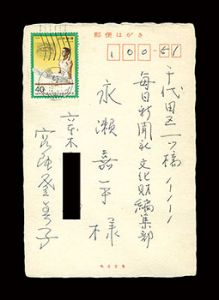 郵便はがき
100-51
千代田区一ツ橋1-1-1
毎日新聞社 文化財編集部
永瀬嘉平様
六本木
40